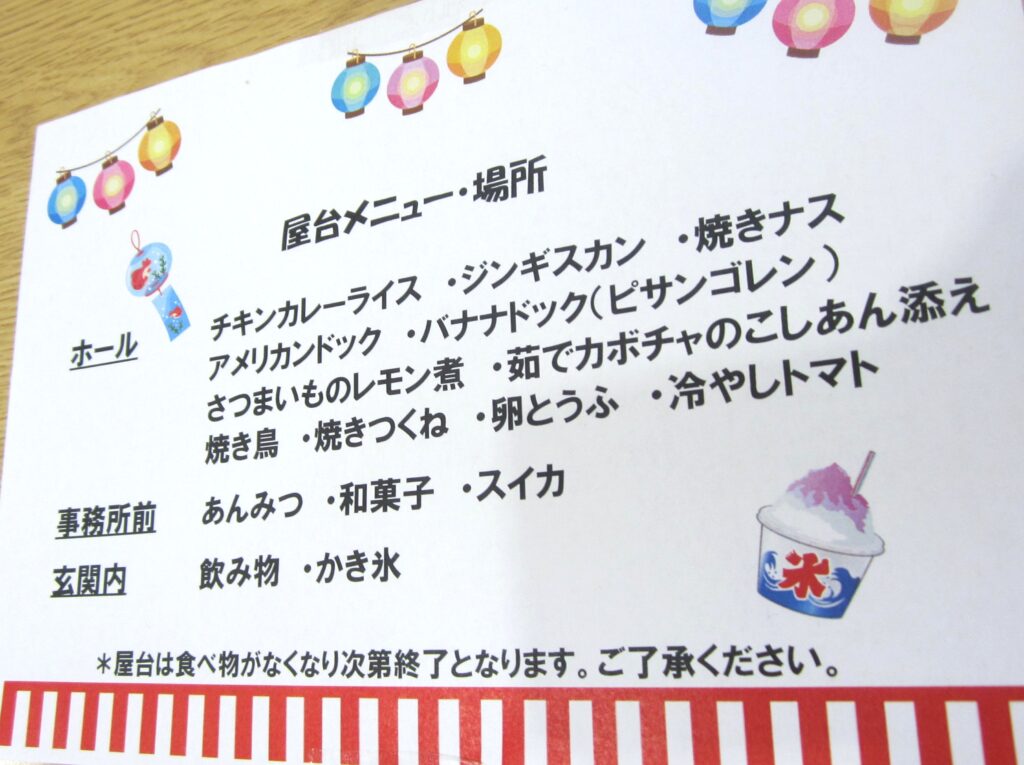 屋台メニュー・場所
ホール チキンカレーライス ・ジンギスカン ・焼きナス
アメリカンドック ・バナナドック(ピサンゴレン)
さつまいものレモン煮 ・茹でカボチャのこしあん添え
焼き鳥 ・焼きつくね ・卵とうふ ・冷やしトマト
事務所前 あんみつ ・和菓子 ・スイカ
玄関内 飲み物 ・かき氷
氷
*屋台は食べ物がなくなり次第終了となります。ご了承ください。